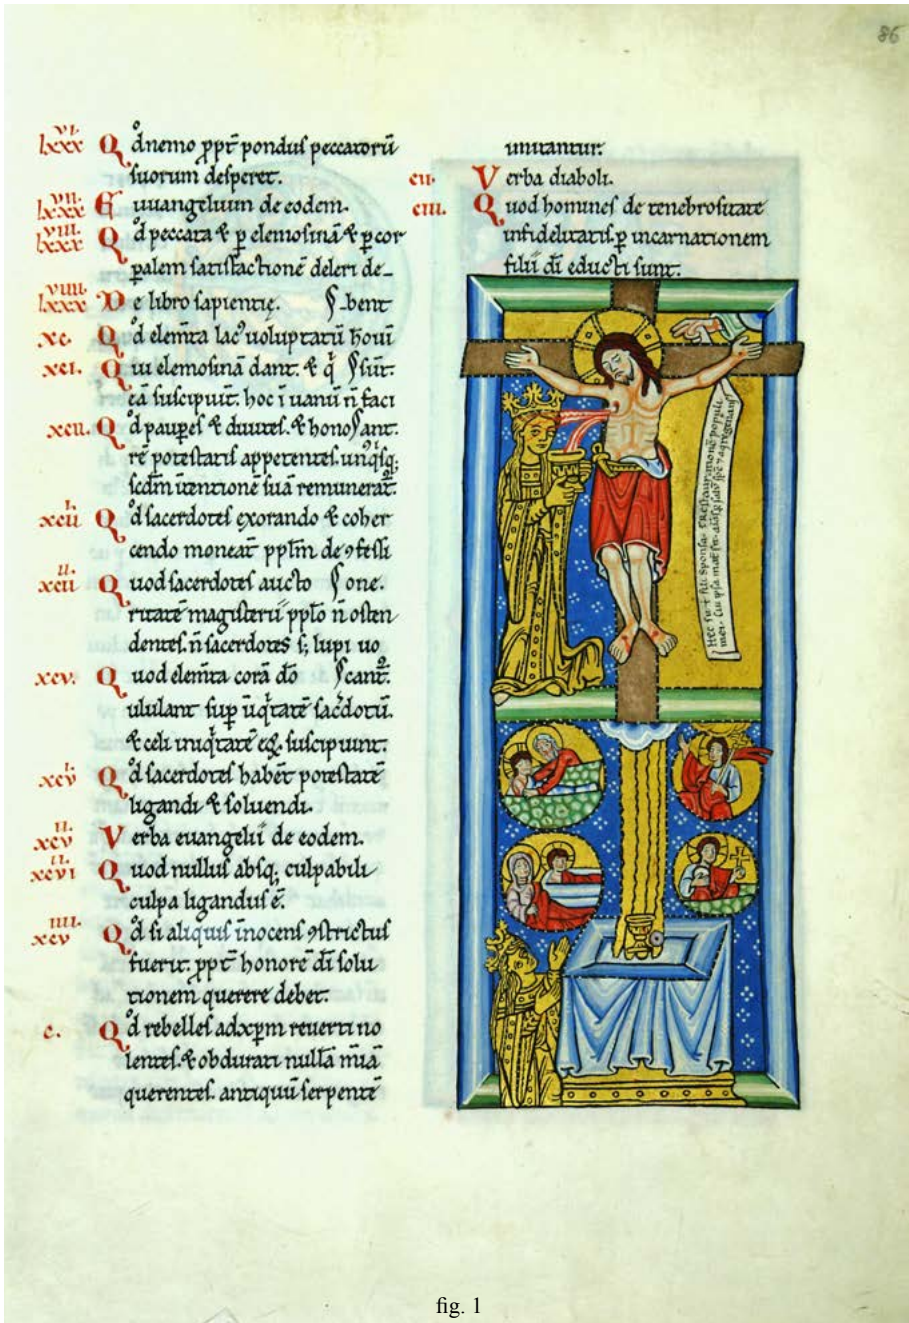 86
lxxxvi Qd nemo ppt pondus peccatorū
suorum desperet.
lxxxvii Euuangelium de eodem.
lxxxviii Qd peccata & p elemosinā & p cor
palem satisfactionē deleri de-
lxxxviiii De libro sapientię. bent
xc. Qd elemta
xci. Qui elemosinā dant. &
eā suscipiunt. hoc ī uanū n̄ faci
xcii. Qd paupes & diuites. & hono ant.
rē potestatis appetentes.
scdm itentionē suā remunerat.
xciii Qd sacerdotes exorando & coher
cendo moneant pplm de
xciiii Quod sacerdotes aucto one.
ritatē magisterii pplo n̄ osten
dentes. n̄ sacerdotes s; lupi uo
xcv. Quod elemta corā do cant.
ululant sup
& celi
xcvi Qd sacerdotes habent potestatē
ligandi & soluendi.
xcvii Verba euangelii de eodem.
xcviii Quod nullus absq; culpabili
culpa ligandus ē.
xcviiii Qd si aliquis īnocens ꝯstrictus
fuerit. ppt honorē di solu
tionem querere debet.
c. Qd rebelles ad xpm reuerti no
lentes. & obdurati nullā miā
querentes. antiquū serpentē
imitantur.
cii. Verba diaboli.
ciii. Quod homines de tenebrositate
infidelitatis. p incarnationem
filii di educti sunt.
fig. 1